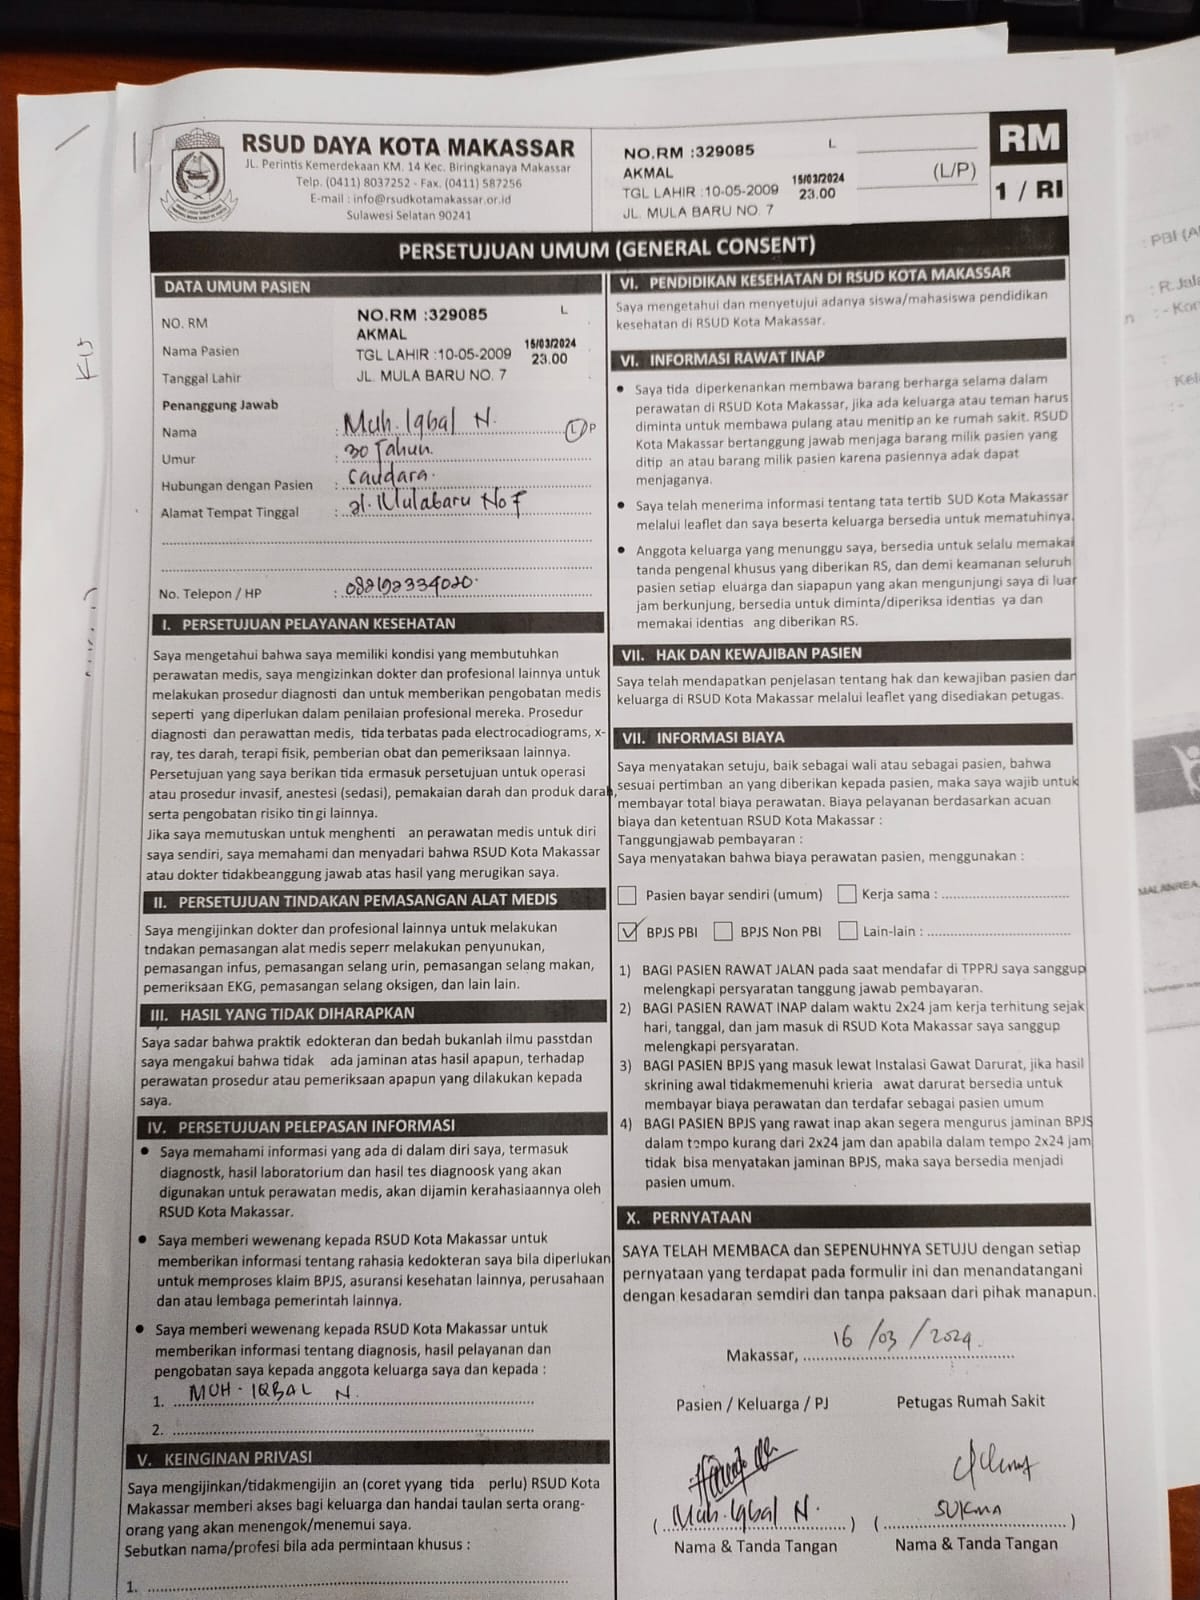 RSUD DAYA KOTA MAKASSAR
JL. Perintis Kemerdekaan KM. 14 Kec. Biringkanaya Makassar
Telp. (0411) 8037252 - Fax. (0411) 587256
E-mail : info@rsudkotamakassar.or.id
Sulawesi Selatan 90241
NO.RM :329085 L
AKMAL
TGL LAHIR :10-05-2009 15/03/2024 23.00
JL. MULA BARU NO. 7
(L/P)
RM
1 / RI
PERSETUJUAN UMUM (GENERAL CONSENT)
DATA UMUM PASIEN
NO. RM NO.RM :329085 L
AKMAL
Nama Pasien TGL LAHIR :10-05-2009 15/03/2024 23.00
Tanggal Lahir JL. MULA BARU NO. 7
Penanggung Jawab
Nama : Muh. Iqbal N. L P
Umur : 30 Tahun.
Hubungan dengan Pasien : Saudara.
Alamat Tempat Tinggal : Jl. Mulabaru No 7
No. Telepon / HP :
I. PERSETUJUAN PELAYANAN KESEHATAN
Saya mengetahui bahwa saya memiliki kondisi yang membutuhkan
perawatan medis, saya mengizinkan dokter dan profesional lainnya untuk
melakukan prosedur diagnosti dan untuk memberikan pengobatan medis
seperti yang diperlukan dalam penilaian profesional mereka. Prosedur
diagnosti dan perawattan medis, tida terbatas pada electrocadiograms, x-
ray, tes darah, terapi fisik, pemberian obat dan pemeriksaan lainnya.
Persetujuan yang saya berikan tida ermasuk persetujuan untuk operasi
atau prosedur invasif, anestesi (sedasi), pemakaian darah dan produk darah,
serta pengobatan risiko tin gi lainnya.
Jika saya memutuskan untuk menghenti an perawatan medis untuk diri
saya sendiri, saya memahami dan menyadari bahwa RSUD Kota Makassar
atau dokter tidakbeanggung jawab atas hasil yang merugikan saya.
II. PERSETUJUAN TINDAKAN PEMASANGAN ALAT MEDIS
Saya mengijinkan dokter dan profesional lainnya untuk melakukan
tndakan pemasangan alat medis seperr melakukan penyunukan,
pemasangan infus, pemasangan selang urin, pemasangan selang makan,
pemeriksaan EKG, pemasangan selang oksigen, dan lain lain.
III. HASIL YANG TIDAK DIHARAPKAN
Saya sadar bahwa praktik edokteran dan bedah bukanlah ilmu passtdan
saya mengakui bahwa tidak ada jaminan atas hasil apapun, terhadap
perawatan prosedur atau pemeriksaan apapun yang dilakukan kepada
saya.
IV. PERSETUJUAN PELEPASAN INFORMASI
• Saya memahami informasi yang ada di dalam diri saya, termasuk
diagnostk, hasil laboratorium dan hasil tes diagnoosk yang akan
digunakan untuk perawatan medis, akan dijamin kerahasiaannya oleh
RSUD Kota Makassar.
• Saya memberi wewenang kepada RSUD Kota Makassar untuk
memberikan informasi tentang rahasia kedokteran saya bila diperlukan
untuk memproses klaim BPJS, asuransi kesehatan lainnya, perusahaan
dan atau lembaga pemerintah lainnya.
• Saya memberi wewenang kepada RSUD Kota Makassar untuk
memberikan informasi tentang diagnosis, hasil pelayanan dan
pengobatan saya kepada anggota keluarga saya dan kepada :
1. MUH. IQBAL N.
2.
V. KEINGINAN PRIVASI
Saya mengijinkan/tidakmengijin an (coret yyang tida perlu) RSUD Kota
Makassar memberi akses bagi keluarga dan handai taulan serta orang-
orang yang akan menengok/menemui saya.
Sebutkan nama/profesi bila ada permintaan khusus :
1.
VI. PENDIDIKAN KESEHATAN DI RSUD KOTA MAKASSAR
Saya mengetahui dan menyetujui adanya siswa/mahasiswa pendidikan
kesehatan di RSUD Kota Makassar.
VI. INFORMASI RAWAT INAP
• Saya tida diperkenankan membawa barang berharga selama dalam
perawatan di RSUD Kota Makassar, jika ada keluarga atau teman harus
diminta untuk membawa pulang atau menitip an ke rumah sakit. RSUD
Kota Makassar bertanggung jawab menjaga barang milik pasien yang
ditip an atau barang milik pasien karena pasiennya adak dapat
menjaganya.
• Saya telah menerima informasi tentang tata tertib SUD Kota Makassar
melalui leaflet dan saya beserta keluarga bersedia untuk mematuhinya.
• Anggota keluarga yang menunggu saya, bersedia untuk selalu memakai
tanda pengenal khusus yang diberikan RS, dan demi keamanan seluruh
pasien setiap eluarga dan siapapun yang akan mengunjungi saya di luar
jam berkunjung, bersedia untuk diminta/diperiksa identias ya dan
memakai identias ang diberikan RS.
VII. HAK DAN KEWAJIBAN PASIEN
Saya telah mendapatkan penjelasan tentang hak dan kewajiban pasien dan
keluarga di RSUD Kota Makassar melalui leaflet yang disediakan petugas.
VII. INFORMASI BIAYA
Saya menyatakan setuju, baik sebagai wali atau sebagai pasien, bahwa
sesuai pertimban an yang diberikan kepada pasien, maka saya wajib untuk
membayar total biaya perawatan. Biaya pelayanan berdasarkan acuan
biaya dan ketentuan RSUD Kota Makassar :
Tanggungjawab pembayaran :
Saya menyatakan bahwa biaya perawatan pasien, menggunakan :
Pasien bayar sendiri (umum) Kerja sama :
✓ BPJS PBI BPJS Non PBI Lain-lain :
1) BAGI PASIEN RAWAT JALAN pada saat mendafar di TPPRJ saya sanggup
melengkapi persyaratan tanggung jawab pembayaran.
2) BAGI PASIEN RAWAT INAP dalam waktu 2x24 jam kerja terhitung sejak
hari, tanggal, dan jam masuk di RSUD Kota Makassar saya sanggup
melengkapi persyaratan.
3) BAGI PASIEN BPJS yang masuk lewat Instalasi Gawat Darurat, jika hasil
skrining awal tidakmemenuhi krieria awat darurat bersedia untuk
membayar biaya perawatan dan terdafar sebagai pasien umum
4) BAGI PASIEN BPJS yang rawat inap akan segera mengurus jaminan BPJS
dalam tempo kurang dari 2x24 jam dan apabila dalam tempo 2x24 jam
tidak bisa menyatakan jaminan BPJS, maka saya bersedia menjadi
pasien umum.
X. PERNYATAAN
SAYA TELAH MEMBACA dan SEPENUHNYA SETUJU dengan setiap
pernyataan yang terdapat pada formulir ini dan menandatangani
dengan kesadaran semdiri dan tanpa paksaan dari pihak manapun.
Makassar, 16 / 03 / 2024.
Pasien / Keluarga / PJ Petugas Rumah Sakit
( Muh. Iqbal N. ) ( SUKMA )
Nama & Tanda Tangan Nama & Tanda Tangan
: PBI (A
: R.Jala
: - Kor
Kel